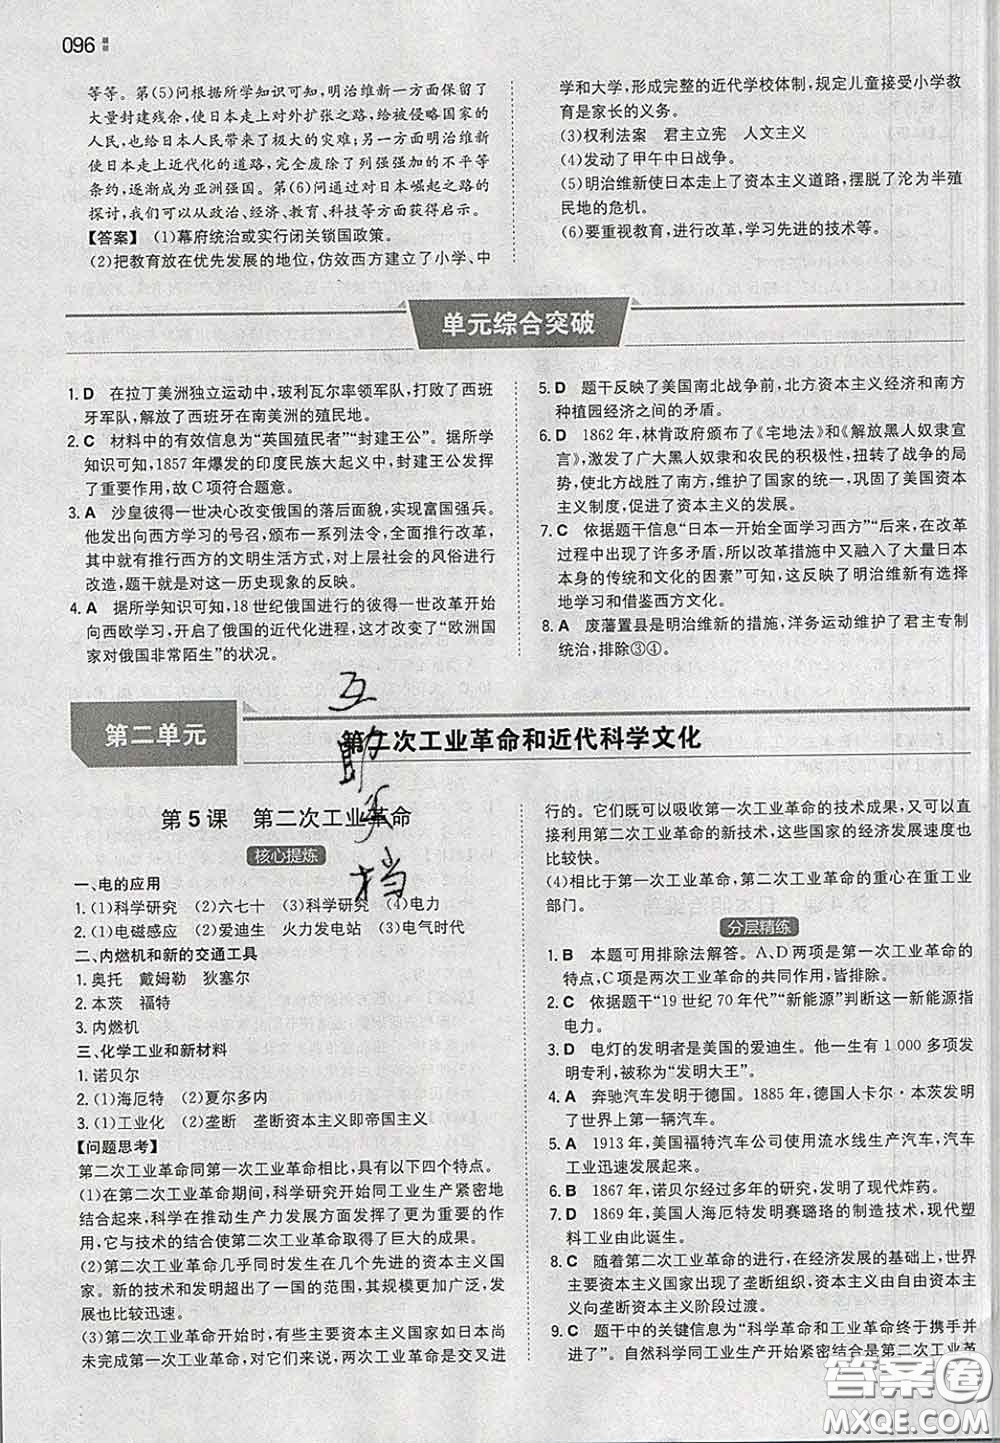 096
等等。第(5)问根据所学知识可知，明治维新一方面保留了
大量封建残余，使日本走上对外扩张之路，给被侵略国家的
人民，也给日本人民带来了极大的灾难；另一方面明治维新
使日本走上近代化的道路，完全废除了列强强加的不平等
条约，逐渐成为亚洲强国。第(6)问通过对日本崛起之路的
探讨，我们可以从政治、经济、教育、科技等方面获得启示。
【答案】 (1)幕府统治或实行闭关锁国政策。
(2)把教育放在优先发展的地位，仿效西方建立了小学、中
学和大学，形成完整的近代学校体制，规定儿童接受小学教
育是家长的义务。
(3)权利法案 君主立宪 人文主义
(4)发动了甲午中日战争。
(5)明治维新使日本走上了资本主义道路，摆脱了沦为半殖
民地的危机。
(6)要重视教育，进行改革，学习先进的技术等。
单元综合突破
1. D 在拉丁美洲独立运动中，玻利瓦尔率领军队，打败了西班
牙军队，解放了西班牙在南美洲的殖民地。
2. C 材料中的有效信息为“英国殖民者”“封建王公”。据所学
知识可知，1857年爆发的印度民族大起义中，封建王公发挥
了重要作用，故C项符合题意。
3. A 沙皇彼得一世决心改变俄国的落后面貌，实现富国强兵。
他发出向西方学习的号召，颁布一系列法令，全力推行改革，
其中就有推行西方的文明生活方式，对上层社会的风俗进行
改造，题干就是对这一历史现象的反映。
4. A 据所学知识可知，18世纪俄国进行的彼得一世改革开始
向西欧学习，开启了俄国的近代化进程，这才改变了“欧洲国
家对俄国非常陌生”的状况。
5. D 题干反映了美国南北战争前，北方资本主义经济和南方
种植园经济之间的矛盾。
6. D 1862年，林肯政府颁布了《宅地法》和《解放黑人奴隶宣
言》，激发了广大黑人奴隶和农民的积极性，扭转了战争的局
势，使北方战胜了南方，维护了国家的统一，巩固了美国资本
主义制度，促进了资本主义的发展。
7. C 依据题干信息“日本一开始全面学习西方”“后来，在改革
过程中出现了许多矛盾，所以改革措施中又融入了大量日本
本身的传统和文化的因素”可知，明治维新有选择
地学习和借鉴西方文化。
8. A 废藩置县是明治维新的措施，洋务运动维护了君主专制
统治，排除③④。
第二单元
第二次工业革命和近代科学文化
互助文档
第5课 第二次工业革命
核心提炼
一、电的应用
1. (1)科学研究 (2)六七十 (3)科学研究 (4)电力
2. (1)电磁感应 (2)爱迪生 火力发电站 (3)电气时代
二、内燃机和新的交通工具
1. 奥托 戴姆勒 狄塞尔
2. 本茨 福特
3. 内燃机
三、化学工业和新材料
1. 诺贝尔
2. (1)海厄特 (2)夏尔多内
3. (1)工业化 (2)垄断 垄断资本主义即帝国主义
【问题思考】
第二次工业革命同第一次工业革命相比，具有以下四个特点。
(1)在第二次工业革命期间，科学研究开始同工业生产紧密地
结合起来，科学在推动生产力发展方面发挥了更为重要的作
用，它与技术的结合使第二次工业革命取得了巨大的成果。
(2)第二次工业革命几乎同时发生在几个先进的资本主义国
家。新的技术和发明超出了一国的范围，其规模更加广泛，发
展也比较迅速。
(3)第二次工业革命开始时，有些主要资本主义国家如日本尚
未完成第一次工业革命，对它们来说，两次工业革命是交叉进
行的。它们既可以吸收第一次工业革命的技术成果，又可以直
接利用第二次工业革命的新技术，这些国家的经济发展速度也
比较快。
(4)相比于第一次工业革命，第二次工业革命的重心在重工业
部门。
分层精练
1. B 本题可用排除法解答。A、D两项是第一次工业革命的
特点，C项是两次工业革命的共同作用，皆排除。
2. C 依据题干“19世纪70年代”“新能源”判断这一新能源指
电力。
3. D 电灯的发明者是美国的爱迪生。他一生有1 000多项发
明专利，被称为“发明大王”。
4. A 奔驰汽车发明于德国。1885年，德国人卡尔·本茨发明
了世界上第一辆汽车。
5. A 1913年，美国福特汽车公司使用流水线生产汽车，汽车
工业迅速发展起来。
6. B 1867年，诺贝尔经过多年的研究，发明了现代炸药。
7. D 1869年，美国人海厄特发明赛璐珞的制造技术，现代塑
料工业由此诞生。
8. C 随着第二次工业革命的进行，在经济发展的基础上，世界
主要资本主义国家出现了垄断组织，资本主义由自由资本主
义向垄断资本主义阶段过渡。
9. C 题干中的关键信息为“科学革命和工业革命终于携手并
进了”。自然科学同工业生产开始紧密结合是第二次工业革
答案圈
MXQE.COM